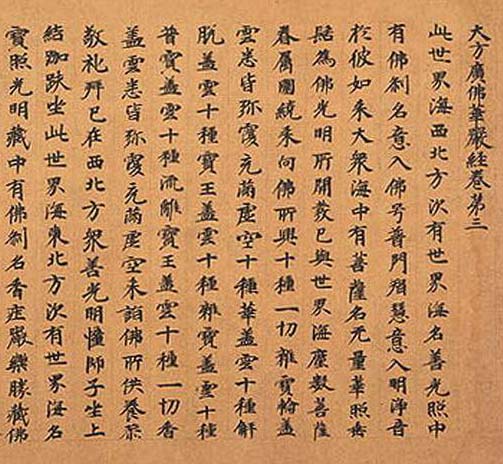 大方廣佛華嚴経卷第三
此世界海西北方次有世界海名善光照中
有佛剎名意入佛号普門智慧意入明淨音
於彼如来大衆海中有菩薩名无量華照垂
髻為佛光明所開發已與世界海塵數菩薩
眷属圍繞来向佛所興十種一切雜寶輪盖
雲悉皆弥覆充滿虚空十種華盖雲十種解
脱盖雲十種寶王盖雲十種雜寶盖雲十種
普寶盖雲十種流離寶王盖雲十種一切香
盖雲悉皆弥覆充滿虚空来詣佛所供養恭
敬礼拜已在西北方衆善光明幢師子坐上
結跏趺坐此世界海東北方次有世界海名
寶照光明藏中有佛剎名香莊嚴樂勝藏佛